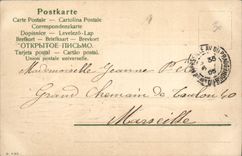 Postkarte
Carte Postale — Cartolina Postale
Correspondenzkarte
Dopisnice — Levelező-Lap
Brefkort — Briefkaart — Brevkort
ОТКРЫТОЕ ПИСЬМО.
Tarjeta postal — Cartão postal
Union postale universelle.
Mademoiselle Jeanne
Grand Chemin de Toulon 40
Marseille